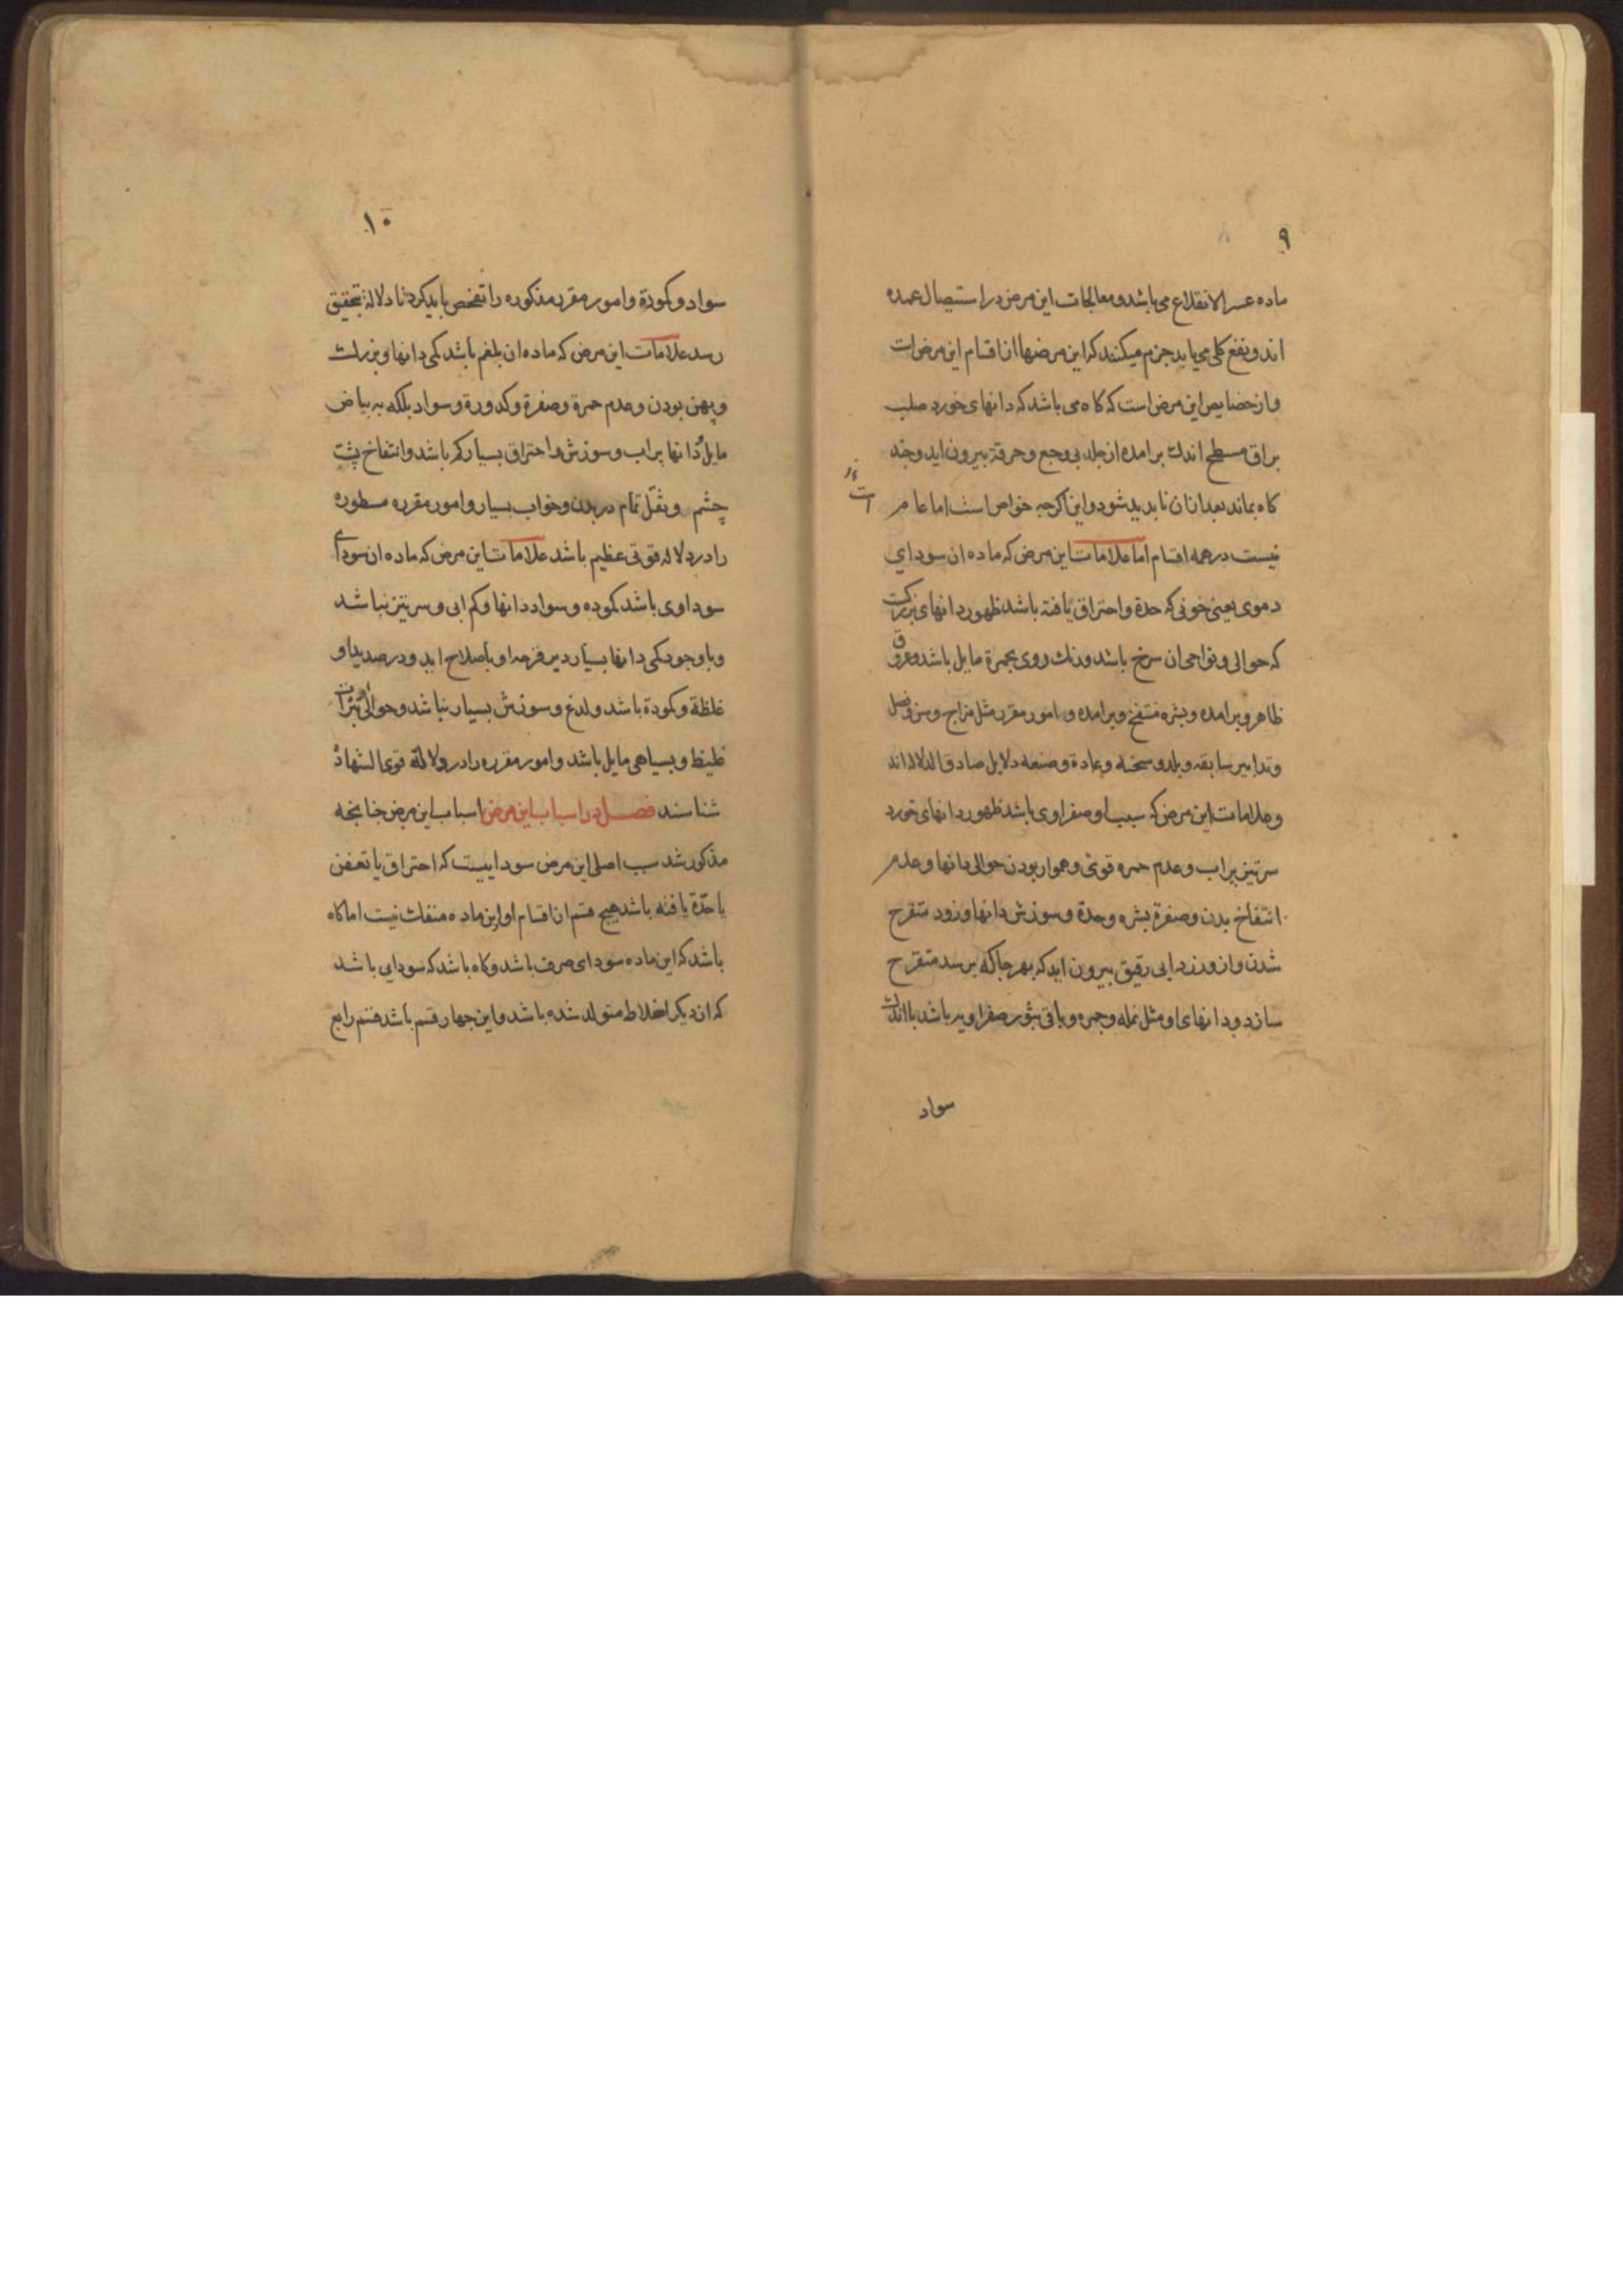 ۹
ماده عسر الانقلاع می باشد و معالجات این مرض در استیصال عمده
اند و نفع کلی می یابد جزم میکنند که این مرضها از اقسام این مرض است
و از خصایص این مرض است که کاه می باشد که دانهای خورد صلب
براق مسطح اندک برامده از جلد بی وجع و حرقة بیرون اید و چند
کاه بماند بعد ازان نابدید شود و این اکرجه خواص است اما عام
نیست در همه اقسام اما علامات این مرض که ماده ان سودای
دموی یعنی خونی که حدة و احتراق یافته باشد ظهور دانهای بزرکست
که حوالی و نواحی ان سرخ باشد و رنک روی بحمرة مایل باشد و عروق
ظاهر و برامده و بشره منتفخ و برامده و امور مقرره مثل مزاج و سن و فصل
و تدابیر سابقه و بلد و سحنه و عادة و صنعه دلایل صادق الدلاله اند
و علامات این مرض که سبب او صفراوی باشد ظهور دانهای خورد
سرتیز پر اب و عدم حمره قوی و هموار بودن حوالی دانها و عدم
انتفاخ بدن و صفرة بشره و حدة و سوزش دانها و زود متقرح
شدن و از و زرد ابی رقیق بیرون اید که بهر جا که برسد متقرح
سازد و دانهای او مثل نمله و جمره و باقی بثور صفراویه باشد با اندک
سواد
۱۰
سواد و کمودة و امور مقرره مذکوره را تفحص باید کرد تا دلالة بتحقیق
رسد علامات این مرض که ماده ان بلغم باشد کمی دانها و بزرک
و پهن بودن و عدم حمرة و صفرة و کدورة و سواد بلکه به بیاض
مایل و دانها پر اب و سوزش و احتراق بسیار کم باشد و انتفاخ پشت
چشم و ثقل تمام در بدن و خواب بسیار و امور مقرره مسطوره
را در دلاله قوتی عظیم باشد علامات این مرض که ماده ان سودای
سوداوی باشد کموده و سواد دانها و کم ابی و سرتیز نباشد
و با وجود کمی دانها بسیار دیر قرحه او باصلاح اید و در صدید او
غلظة و کمودة باشد و لدغ و سوزش بسیار نباشد و حوالی بثرات
غلیظ و بسیاهی مایل باشد و امور مقرره را در دلالة قوی الشهادة
شناسند فصل در اسباب این مرض اسباب این مرض جنانجه
مذکور شد سبب اصلی این مرض سوداییست که احتراق یا تعفن
یا حدّة یافته باشد هیچ قسم از اقسام او از این ماده منفک نیست اما کاه
باشد که این ماده سودای صرف باشد و کاه باشد که سودایی باشد
که از دیکر اخلاط متولد شده باشد و این جهار قسم باشد قسم رابع